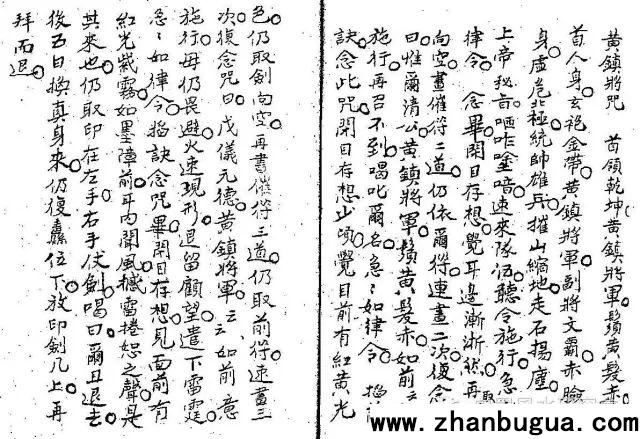 黄鎮將咒　首領乾坤黄鎮將軍鬚黄髮赤
首人身玄袍金帶黄鎮將軍副將文霸赤臉
身虛危北極統帥雄兵摧山縮地走石揚塵
上帝秘旨哂咋喑速來隊伍聽令施行急
律令　念畢閉目存想覺耳邊漸漸然再
向空畫催符二道仍依爾符連畫二次復念
曰惟爾清公黄鎮將軍鬚黄髮赤如前云
施行再召不到喝叱爾名急〻如律令　掐取
訣念此咒閉目存想少頃覺目前有紅黄光
色仍取劍向空再書催符三道仍取前符速畫三
次復念咒曰戊儀元德黄鎮將軍云云如前意
施行毋仍畏避火速現形退留顧望遣下雷霆
急〻如律令掐訣念咒畢閉目存想見面前有
紅光紫霧如墨障前耳内聞風撼雷捲怒之聲是
其來也仍取印在左手右手仗劍喝曰爾且退去
後五日換真身來仍復位下放印劍几上再
拜而退
www.zhanbugua.com